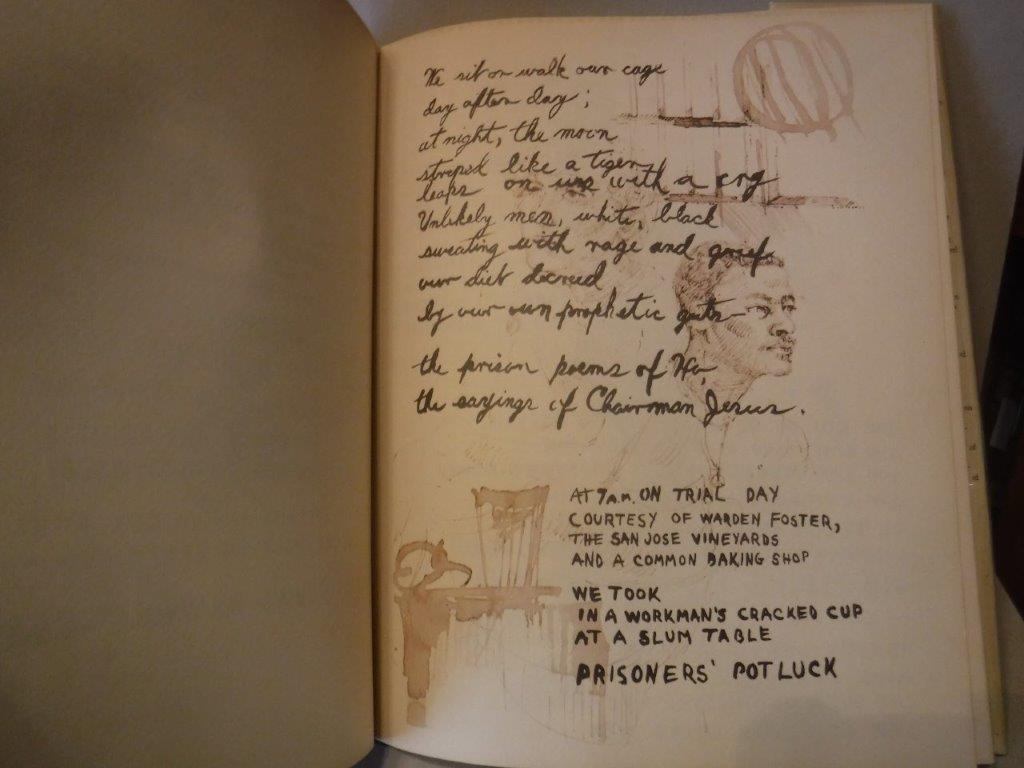 We sit or walk our cage
day after day;
at night, the moon
striped like a tiger
leaps on us with a cry
Unlikely men, white, black
sweating with rage and grief
our diet decreed
by our own prophetic guts—
the prison poems of Ho,
the sayings of Chairman Jesus.
AT 7 A.M. ON TRIAL DAY
COURTESY OF WARDEN FOSTER,
THE SAN JOSE VINEYARDS
AND A COMMON BAKING SHOP
WE TOOK
IN A WORKMAN'S CRACKED CUP
AT A SLUM TABLE
PRISONERS' POTLUCK